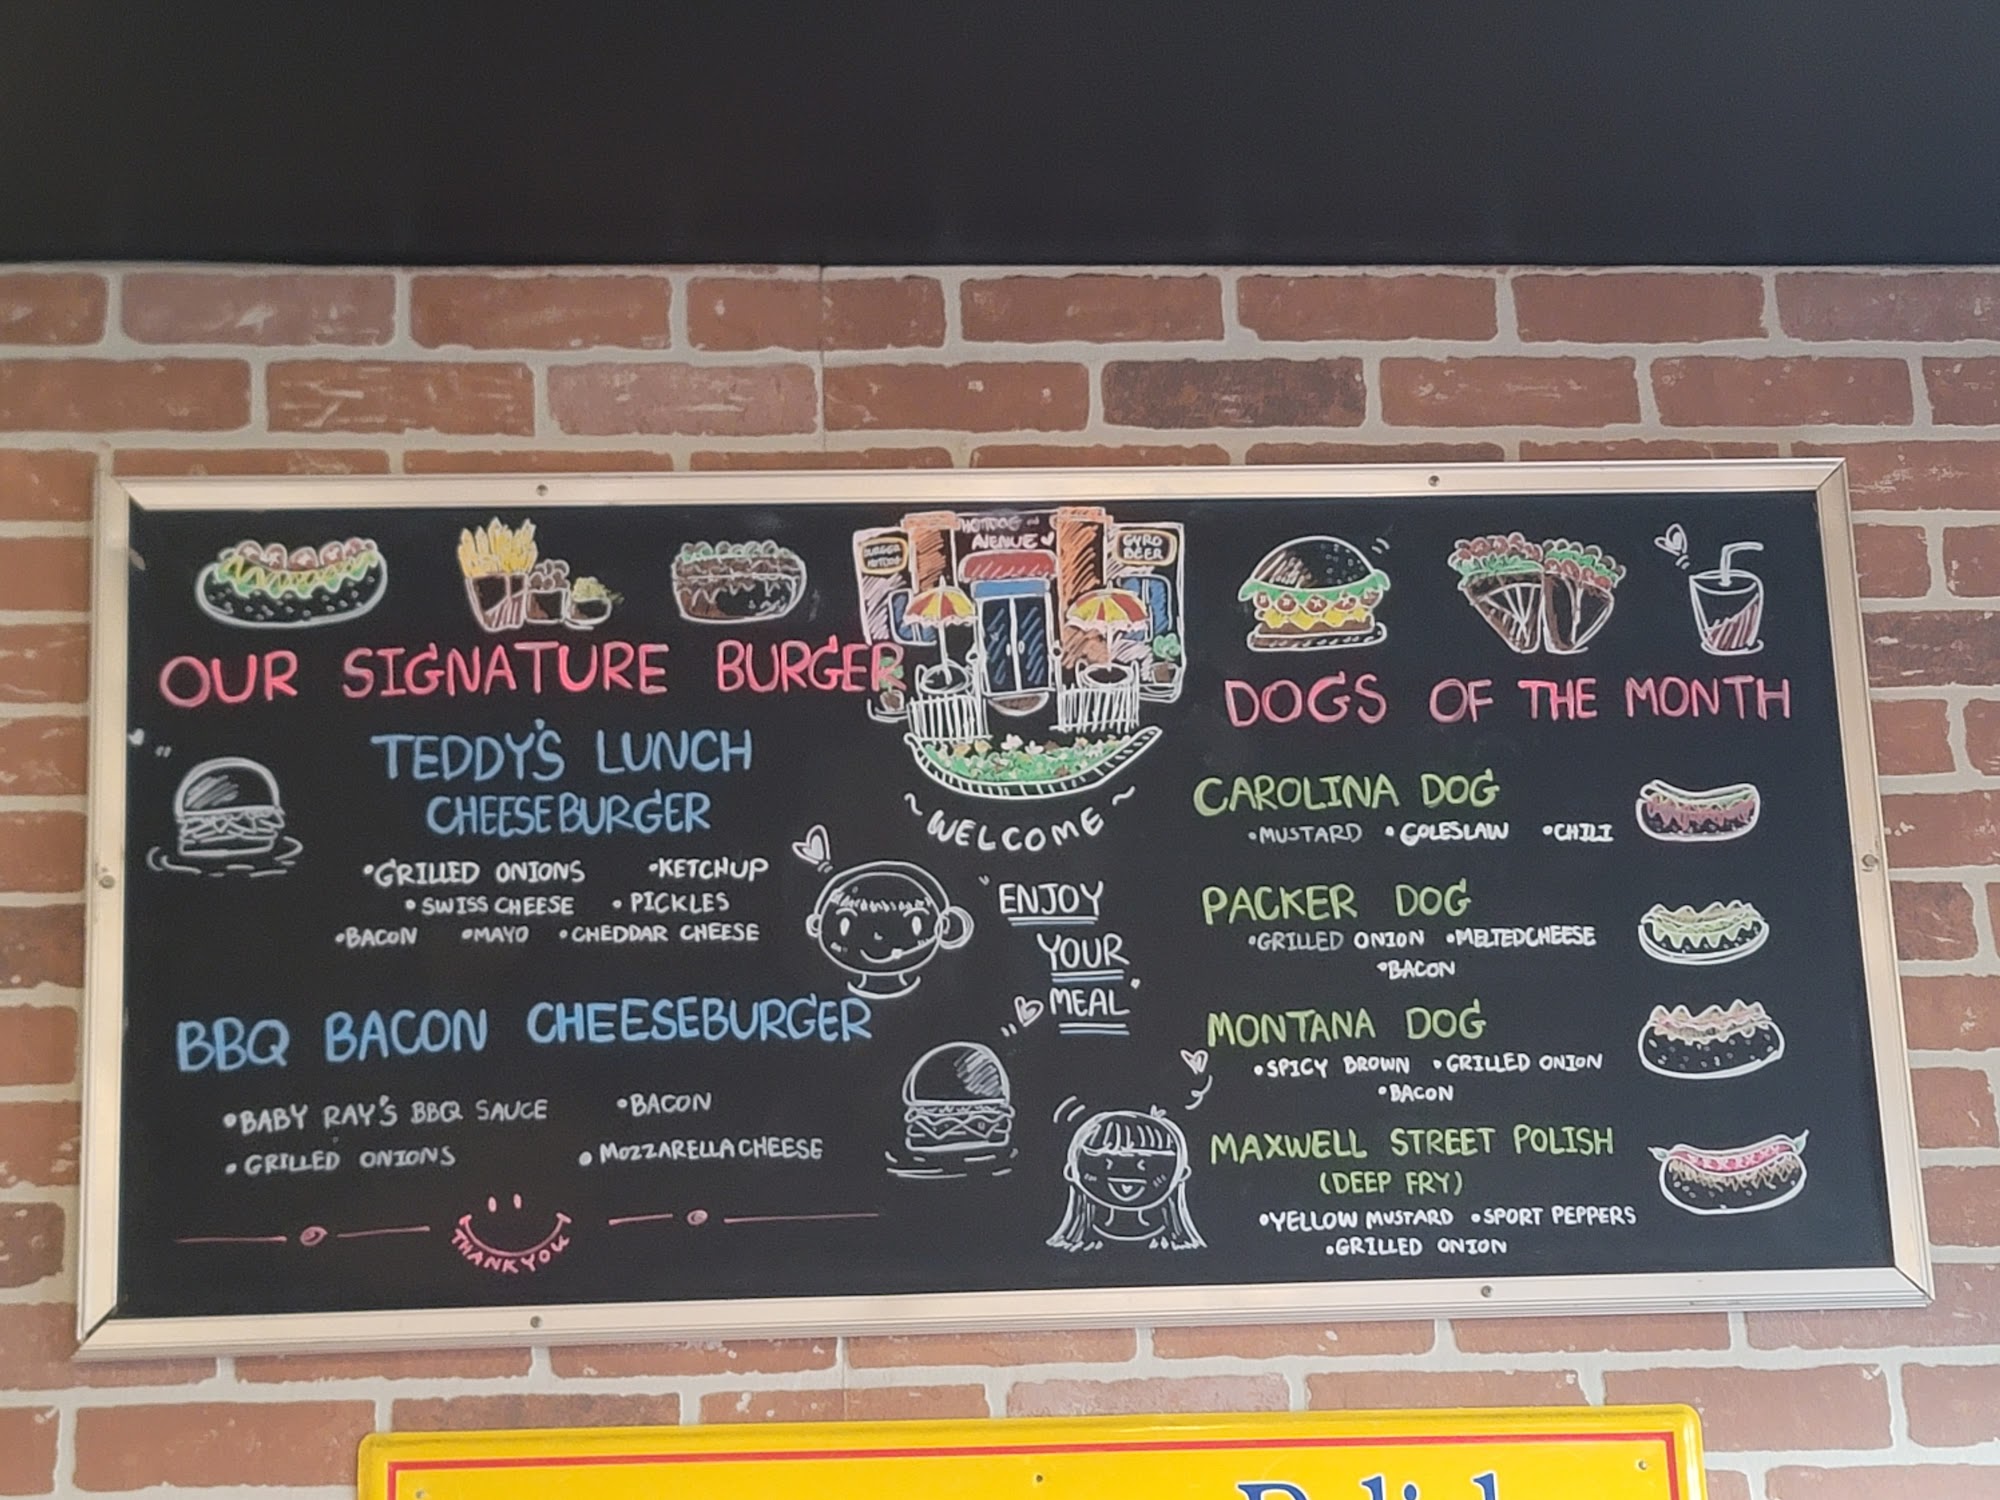 HOTDOG
AVENUE
BURGER
HOTDOG
GYRO
BEER
OUR SIGNATURE BURGER
TEDDY'S LUNCH
CHEESEBURGER
•GRILLED ONIONS •KETCHUP
•SWISS CHEESE •PICKLES
•BACON •MAYO •CHEDDAR CHEESE
BBQ BACON CHEESEBURGER
•BABY RAY'S BBQ SAUCE •BACON
•GRILLED ONIONS •MOZZARELLA CHEESE
THANK YOU
~WELCOME~
"ENJOY
YOUR
MEAL"
DOGS OF THE MONTH
CAROLINA DOG
•MUSTARD •COLESLAW •CHILI
PACKER DOG
•GRILLED ONION •MELTED CHEESE
•BACON
MONTANA DOG
•SPICY BROWN •GRILLED ONION
•BACON
MAXWELL STREET POLISH
(DEEP FRY)
•YELLOW MUSTARD •SPORT PEPPERS
•GRILLED ONION